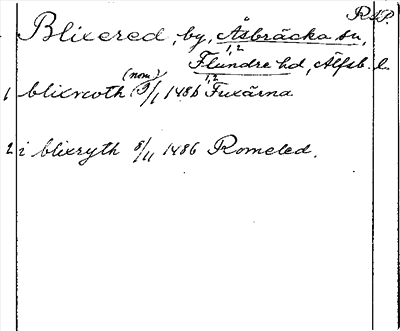 RäP.
Blixered, by, Åsbräcka sn,
1,2
Flundre hd, Älfsb. l.
1,2
(nom)
1 blixrwoth 9/1 1486 Fuxärna
2 i blixryth 8/11 1486 Romeled.